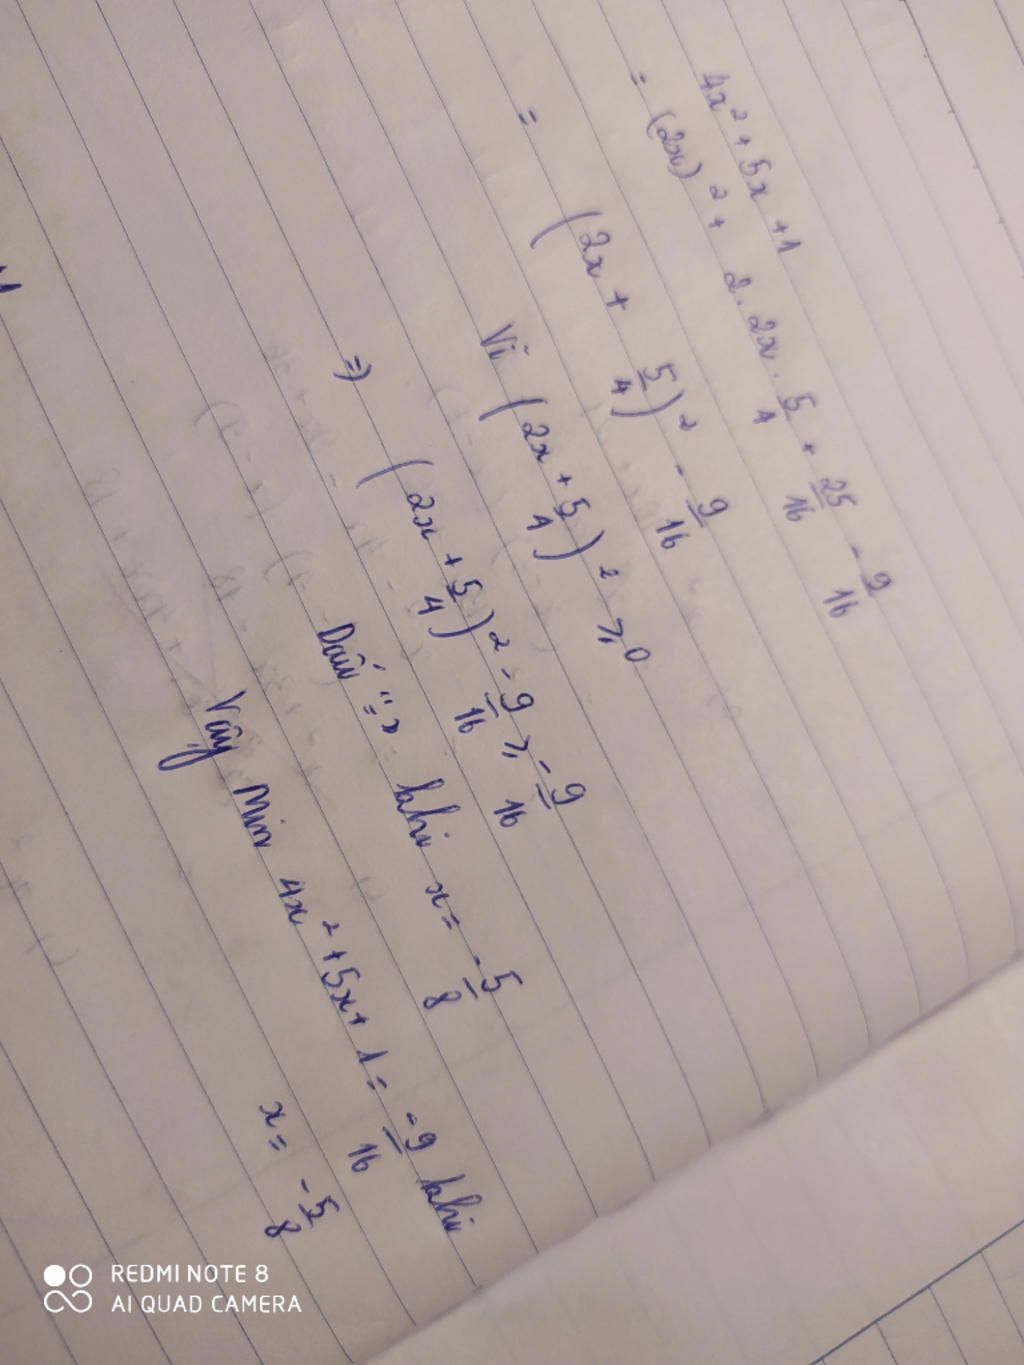 4x² + 5x + 1
= (2x)² + 2 . 2x . 5/4 + 25/16 - 9/16
= (2x + 5/4)² - 9/16
Vì (2x + 5/4)² ⩾ 0
=> (2x + 5/4)² - 9/16 ⩾ -9/16
Dấu "=" khi x = -5/8
Vậy Min 4x² + 5x + 1 = -9/16 khi
x = -5/8
REDMI NOTE 8
AI QUAD CAMERA